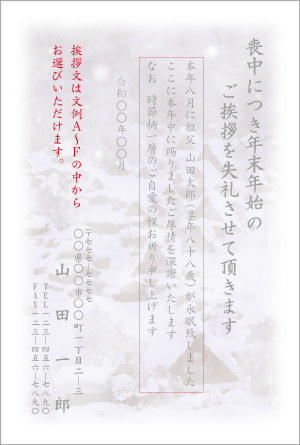 喪中につき年末年始の
ご挨拶を失礼させて頂きます
本年八月に祖父 山田太郎（享年八十八歳）が永眠致しました
ここに本年中に賜りましたご厚情を深謝いたします
なお 時節柄一層のご自愛の程お祈り申し上げます
令和〇〇年〇〇月
挨拶文は文例A～Fの中から
お選びいただけます。
〒七七七-七七七七
〇〇県〇〇市〇〇町一丁目二―三
山田 一郎
TEL 一二三―四五六―七八九〇
FAX 一二三―四五六―七八九〇